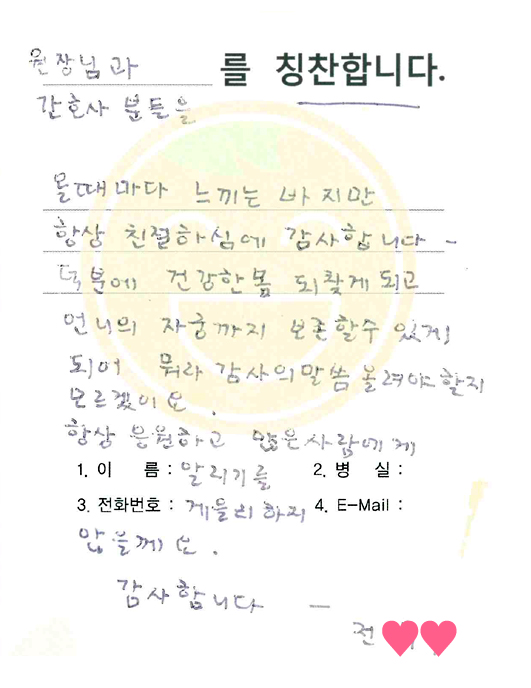 원장님과 를 칭찬합니다.
간호사 분들을
올때마다 느끼는 바 지만
항상 친절하심에 감사합니다 -
덕분에 건강한몸 되찾게 되고
언니의 자궁까지 보존할수 있게
되어 뭐라 감사의말씀 올려야할지
모르겠어요.
항상 응원하고 많은사람에게
1. 이 름 : 알리기를 2. 병 실 :
3. 전화번호 : 게을리 하지 4. E-Mail :
않을께요.
감사합니다 —
전